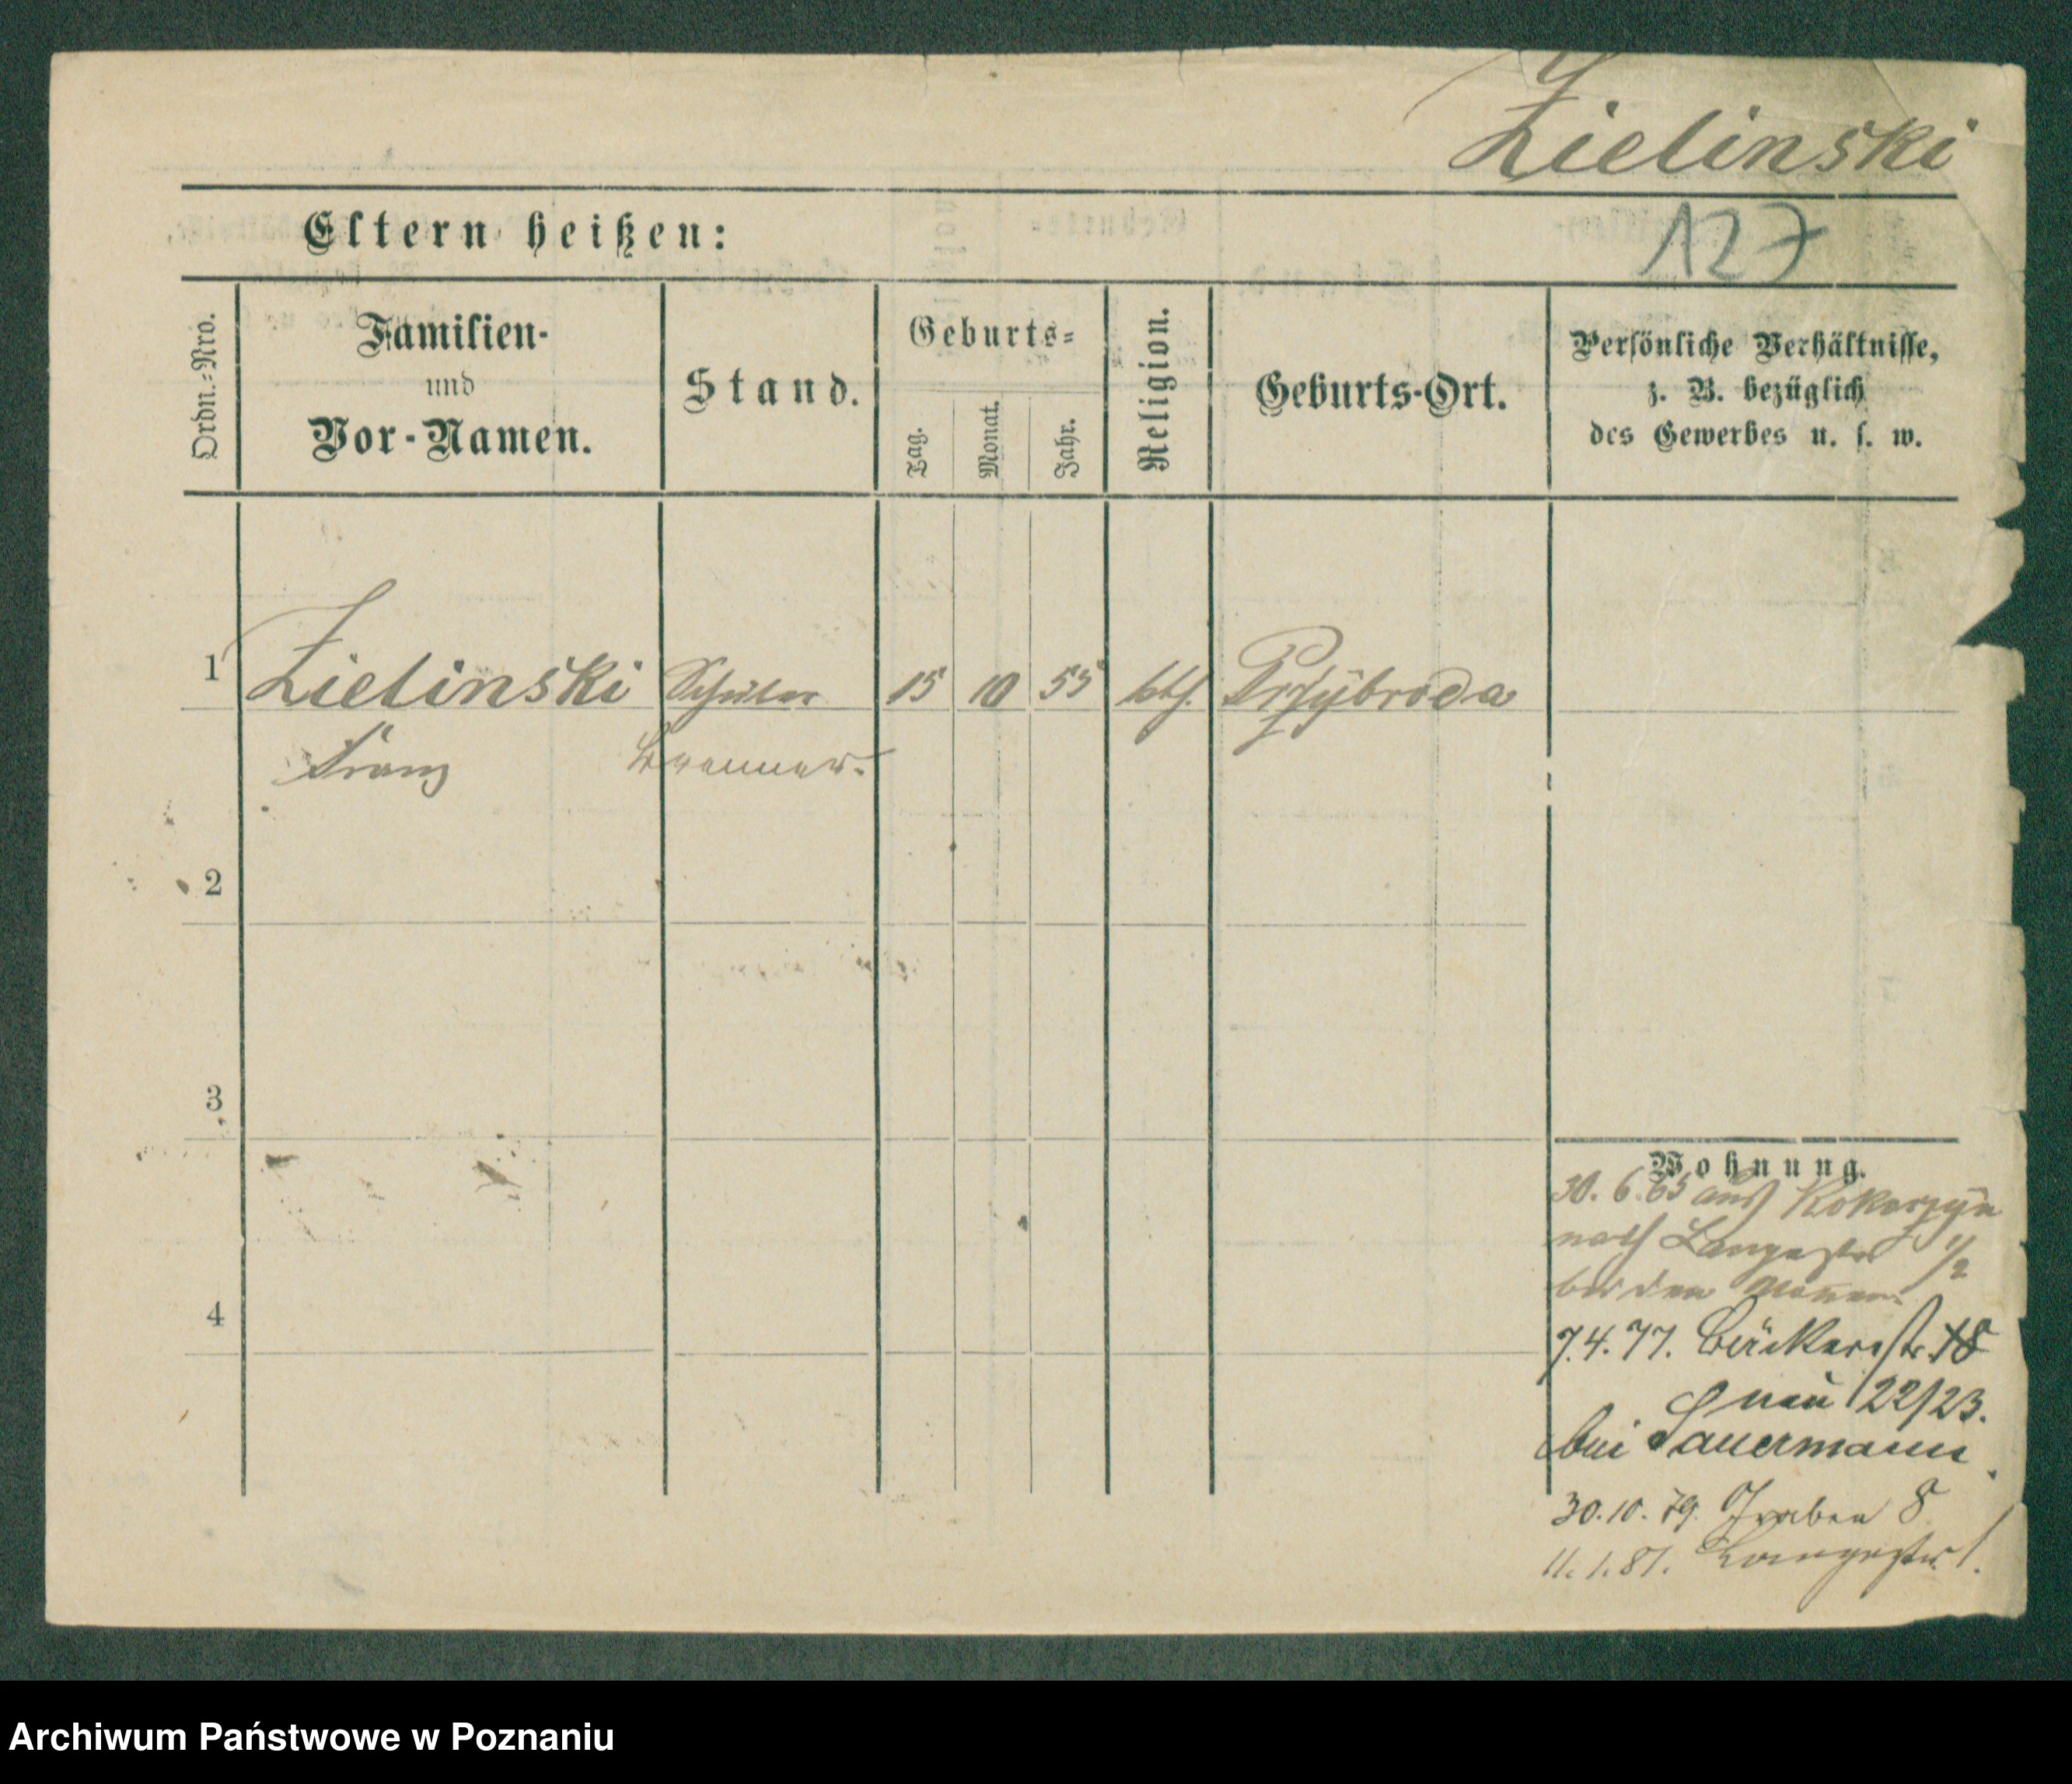 Zielinski
Eltern heißen:
127
Ordn.-Nro.
Familien-
und
Vor-Namen.
Stand.
Geburts-
Tag.
Monat.
Jahr.
Religion.
Geburts-Ort.
Persönliche Verhältnisse,
z. B. bezüglich
des Gewerbes u. s. w.
1 Zielinski Schüler 15 10 55 kth. Przybroda
Franz Brenner.
2
3
4
Wohnung.
30. 6. 65 aus Kokorzyn
nach Langestr 1/2
bei den
7.4.77. Bäckerstr. 18
neu 22/23.
bei Sauermann
30.10.79. Graben 8
11.1.81. Langestr. 1.
Archiwum Państwowe w Poznaniu